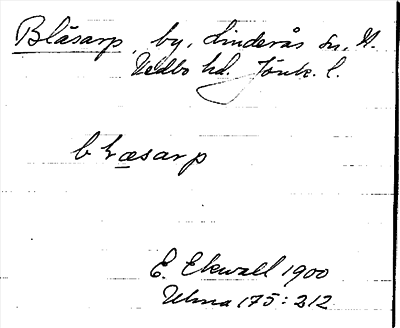 Blåsarp, by, Linderås sn, N.
Vedbo hd. Jönk. l.
bɫæsarp
E. Ekwall 1900
Ulma 175:212